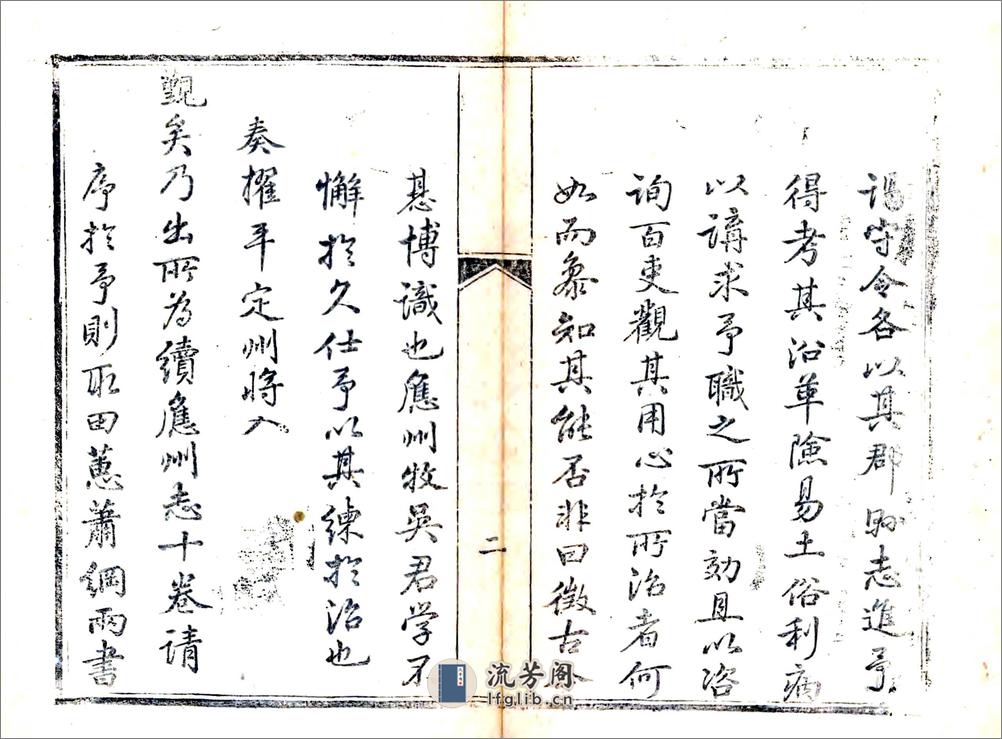 謁守令各以其郡縣志進予
得考其沿革險易土俗利病
以講求予職之所當効且以咨
詢百吏觀其用心扵所治者何
如而叅知其能否非曰徵古今
二
惎博識也應州牧吳君学不
懈扵久仕予以其練扵治也
奏擢平定州將入
覲矣乃出所為續應州志十卷请
序扵予則取田蕙蕭綱兩書
流芳阁
lfglib.cn